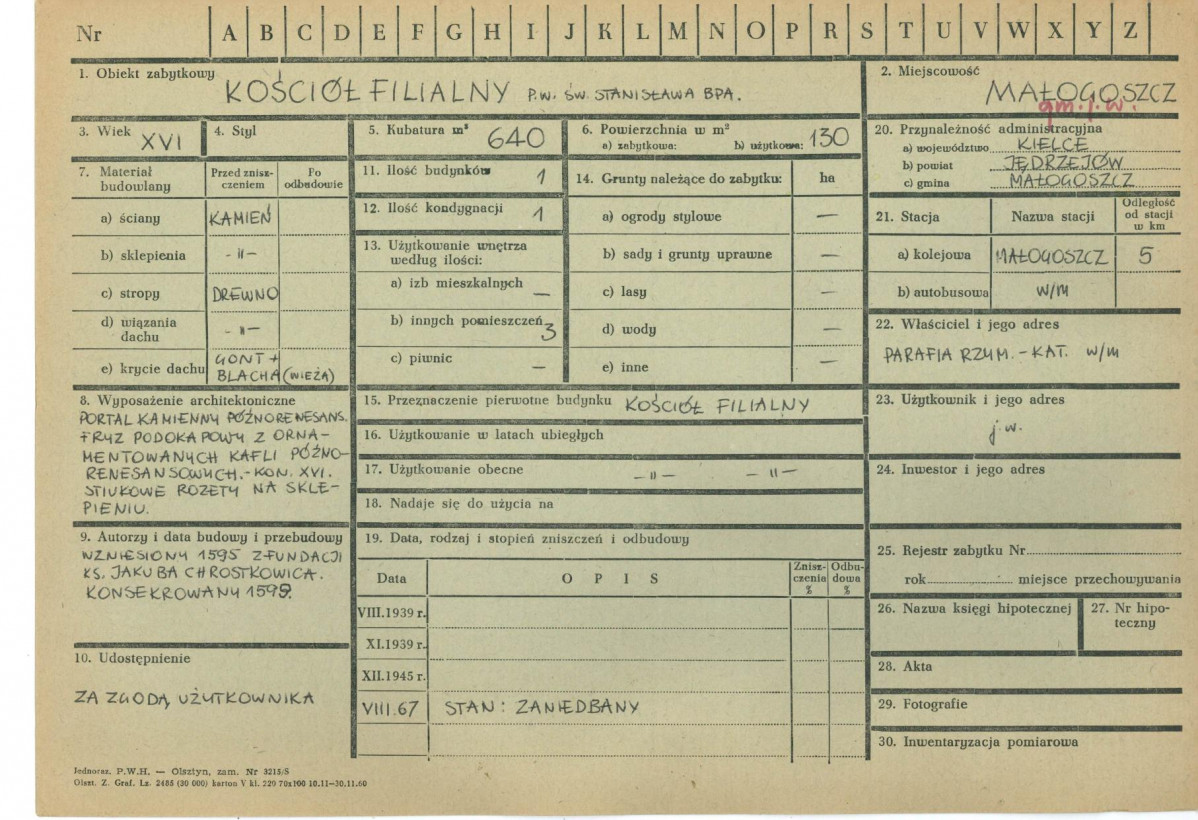 Nr A B C D E F G H I J K L M N O P R S T U V W X Y Z
1. Obiekt zabytkowy KOŚCIÓŁ FILIALNY P.W. ŚW. STANISŁAWA BPA.
2. Miejscowość
MAŁOGOSZCZ
gm. j. w.
3. Wiek XVI
4. Styl
5. Kubatura m³ 640
6. Powierzchnia w m²
a) zabytkowa: b) użytkowa: 130
7. Materiał budowlany
Przed zniszczeniem
Po odbudowie
a) ściany KAMIEŃ
b) sklepienia -"-
c) stropy DREWNO
d) wiązania dachu -"-
e) krycie dachu GONT + BLACHA (WIEŻA)
8. Wyposażenie architektoniczne
PORTAL KAMIENNY PÓŹNORENESANS.
FRYZ PODOKAPOWY Z ORNA-
MENTOWANYCH KAFLI PÓŹNO-
RENESANSOWYCH.-KON. XVI.
STIUKOWE ROZETY NA SKLE-
PIENIU.
9. Autorzy i data budowy i przebudowy
WZNIESIONY 1595 Z FUNDACJI
KS. JAKUBA CHROSTKOWICA.
KONSEKROWANY 1595.
10. Udostępnienie
ZA ZGODĄ UŻYTKOWNIKA
11. Ilość budynków 1
12. Ilość kondygnacji 1
13. Użytkowanie wnętrza
według ilości:
a) izb mieszkalnych —
b) innych pomieszczeń 3
c) piwnic —
14. Grunty należące do zabytku: ha
a) ogrody stylowe —
b) sady i grunty uprawne —
c) lasy —
d) wody —
e) inne —
15. Przeznaczenie pierwotne budynku KOŚCIÓŁ FILIALNY
16. Użytkowanie w latach ubiegłych
17. Użytkowanie obecne -"- -"-
18. Nadaje się do użycia na
19. Data, rodzaj i stopień zniszczeń i odbudowy
Data OPIS Zniszczenia % Odbudowa %
VIII.1939 r.
XI.1939 r.
XII.1945 r.
VIII.67 STAN: ZANIEDBANY
20. Przynależność administracyjna
a) województwo KIELCE
b) powiat JĘDRZEJÓW
c) gmina MAŁOGOSZCZ
21. Stacja Nazwa stacji Odległość od stacji w km
a) kolejowa MAŁOGOSZCZ 5
b) autobusowa W/M
22. Właściciel i jego adres
PARAFIA RZYM.-KAT. W/M
23. Użytkownik i jego adres
j.w.
24. Inwestor i jego adres
25. Rejestr zabytku Nr
rok miejsce przechowywania
26. Nazwa księgi hipotecznej
27. Nr hipo-
teczny
28. Akta
29. Fotografie
30. Inwentaryzacja pomiarowa
Jednoraz. P.W.H. — Olsztyn, zam. Nr 3215/S
Olszt. Z. Graf. Lz. 2485 (30 000) karton V kl. 220 70x100 10.11—30.11.60